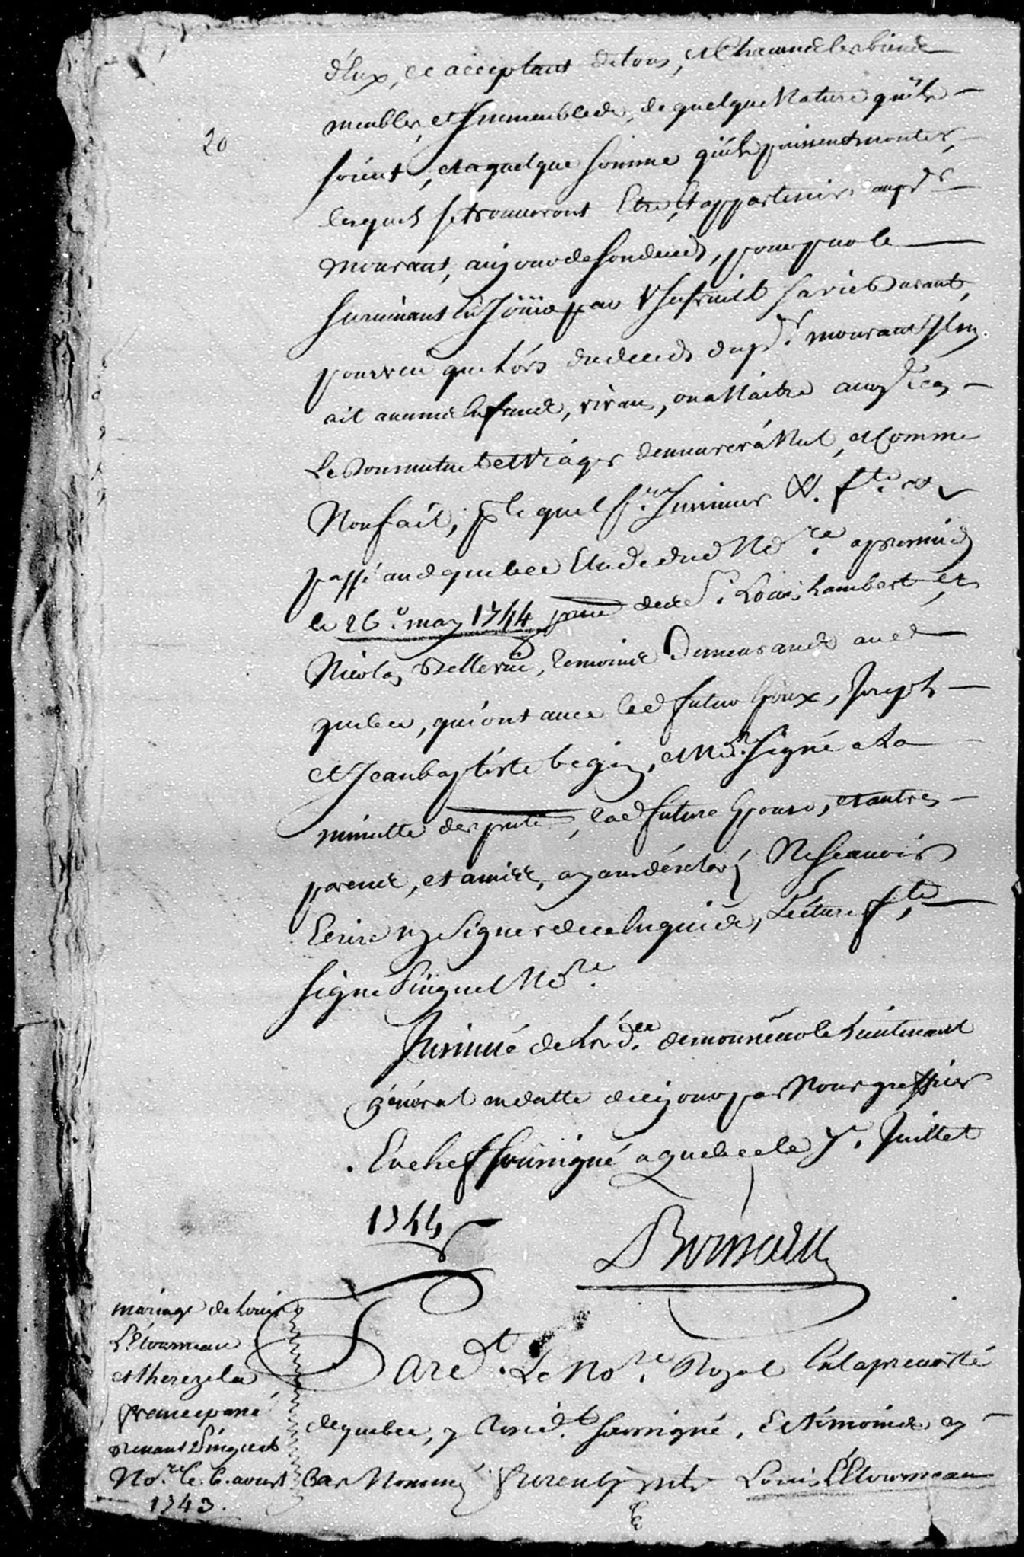 d'Eux, ce acceptant de tous, et Chacun des biens
meubles, et Immeubles de, de quelque Nature qu'ils
20
soient, et a quelque somme qu'ils puissent monter,
lesquels se trouveront Etre, et appartenir au pr.
mourant, au jour de son deceds, pour par le
survivant En Jouir par Usufruitt sa vie Durant,
pourveu que Lors du deceds du pr. mourant Il ny
ait aucuns Enfants, vivans, ou a Naitre auquel Cas
Le Don mutuel et Viager demeurera Nul, et Comme
Non fait;
passé aud quebec Etude dud No.re apresmidy
le 26.e may 1744 de S.r Louis Lambert et
Nicolas Bellevüe, temoins Demeurants aud
quebec, qui ont avec led futur Epoux, Joseph
et Jean baptiste begin, et No.re signé a La
minutte des p.ntes, lad future Epouse, et autres
parens, et amis, ayant déclaré Ne scavoir
Ecrire ny signer de ce Enquis, Lecture f.te
signé Pinguet No.re
Insinué de L'or.ce de monsieur le Lieutenant
général en datte de ce jour par Nous greffier
En chef soussigné a quebec le 7.e Juillet
1744
Boisseau
mariage de Louis
L'Etourneau
et thereze
passé
devant Pinguet
No.re le 6. aoust
1743.
Pard.t Le No.re Royal En la prevosté
de quebec, y resid.t soussigné, Et témoins cy
bas Nommés furent p.nts Louis L'Etourneau